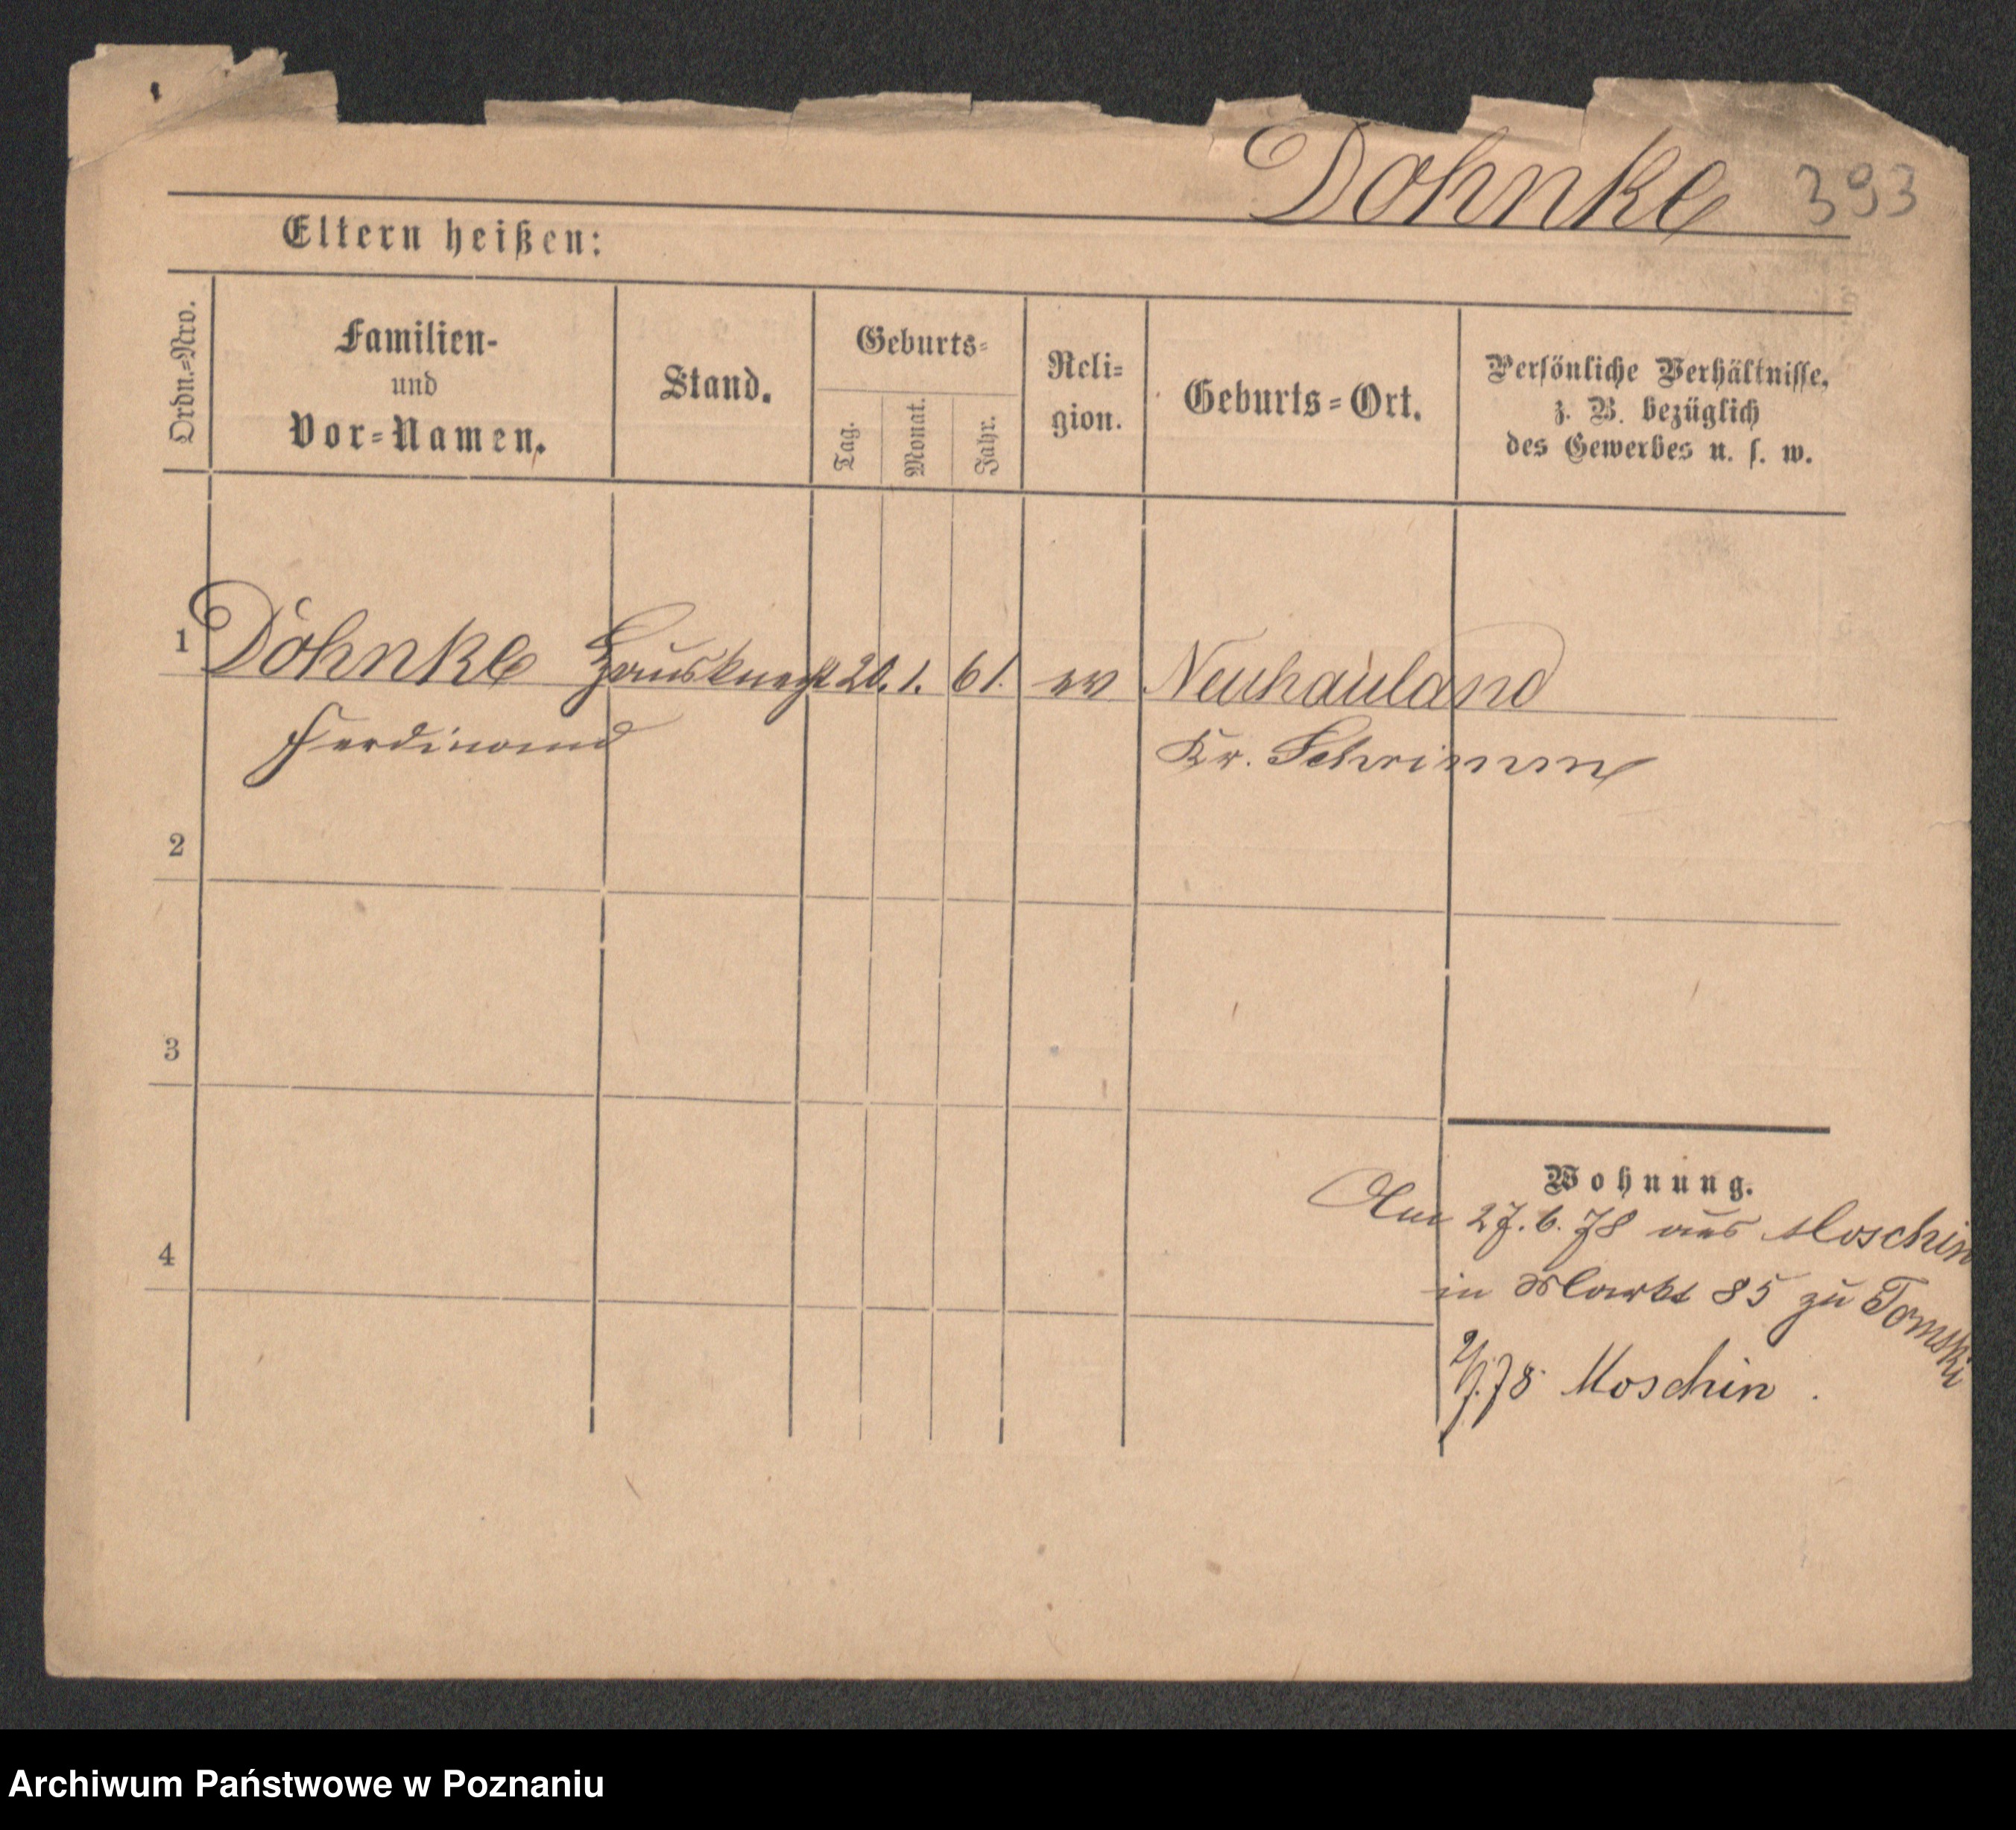 Döhnke 393
Eltern heißen:
Ordn.=Nro.
Familien-
und
Vor=Namen.
Stand.
Geburts=
Tag.
Monat.
Jahr.
Reli=
gion.
Geburts=Ort.
Persönliche Verhältnisse,
z. B. bezüglich
des Gewerbes u. s. w.
1 Döhnke Hausknecht 20. 1. 61. ev Neuhauland
Ferdinand Kr. Schrimm
2
3
4
Wohnung.
Am 27. 6. 78 aus Moschin
in Markt 85 zu Tomski
2/7.78 Moschin.
Archiwum Państwowe w Poznaniu